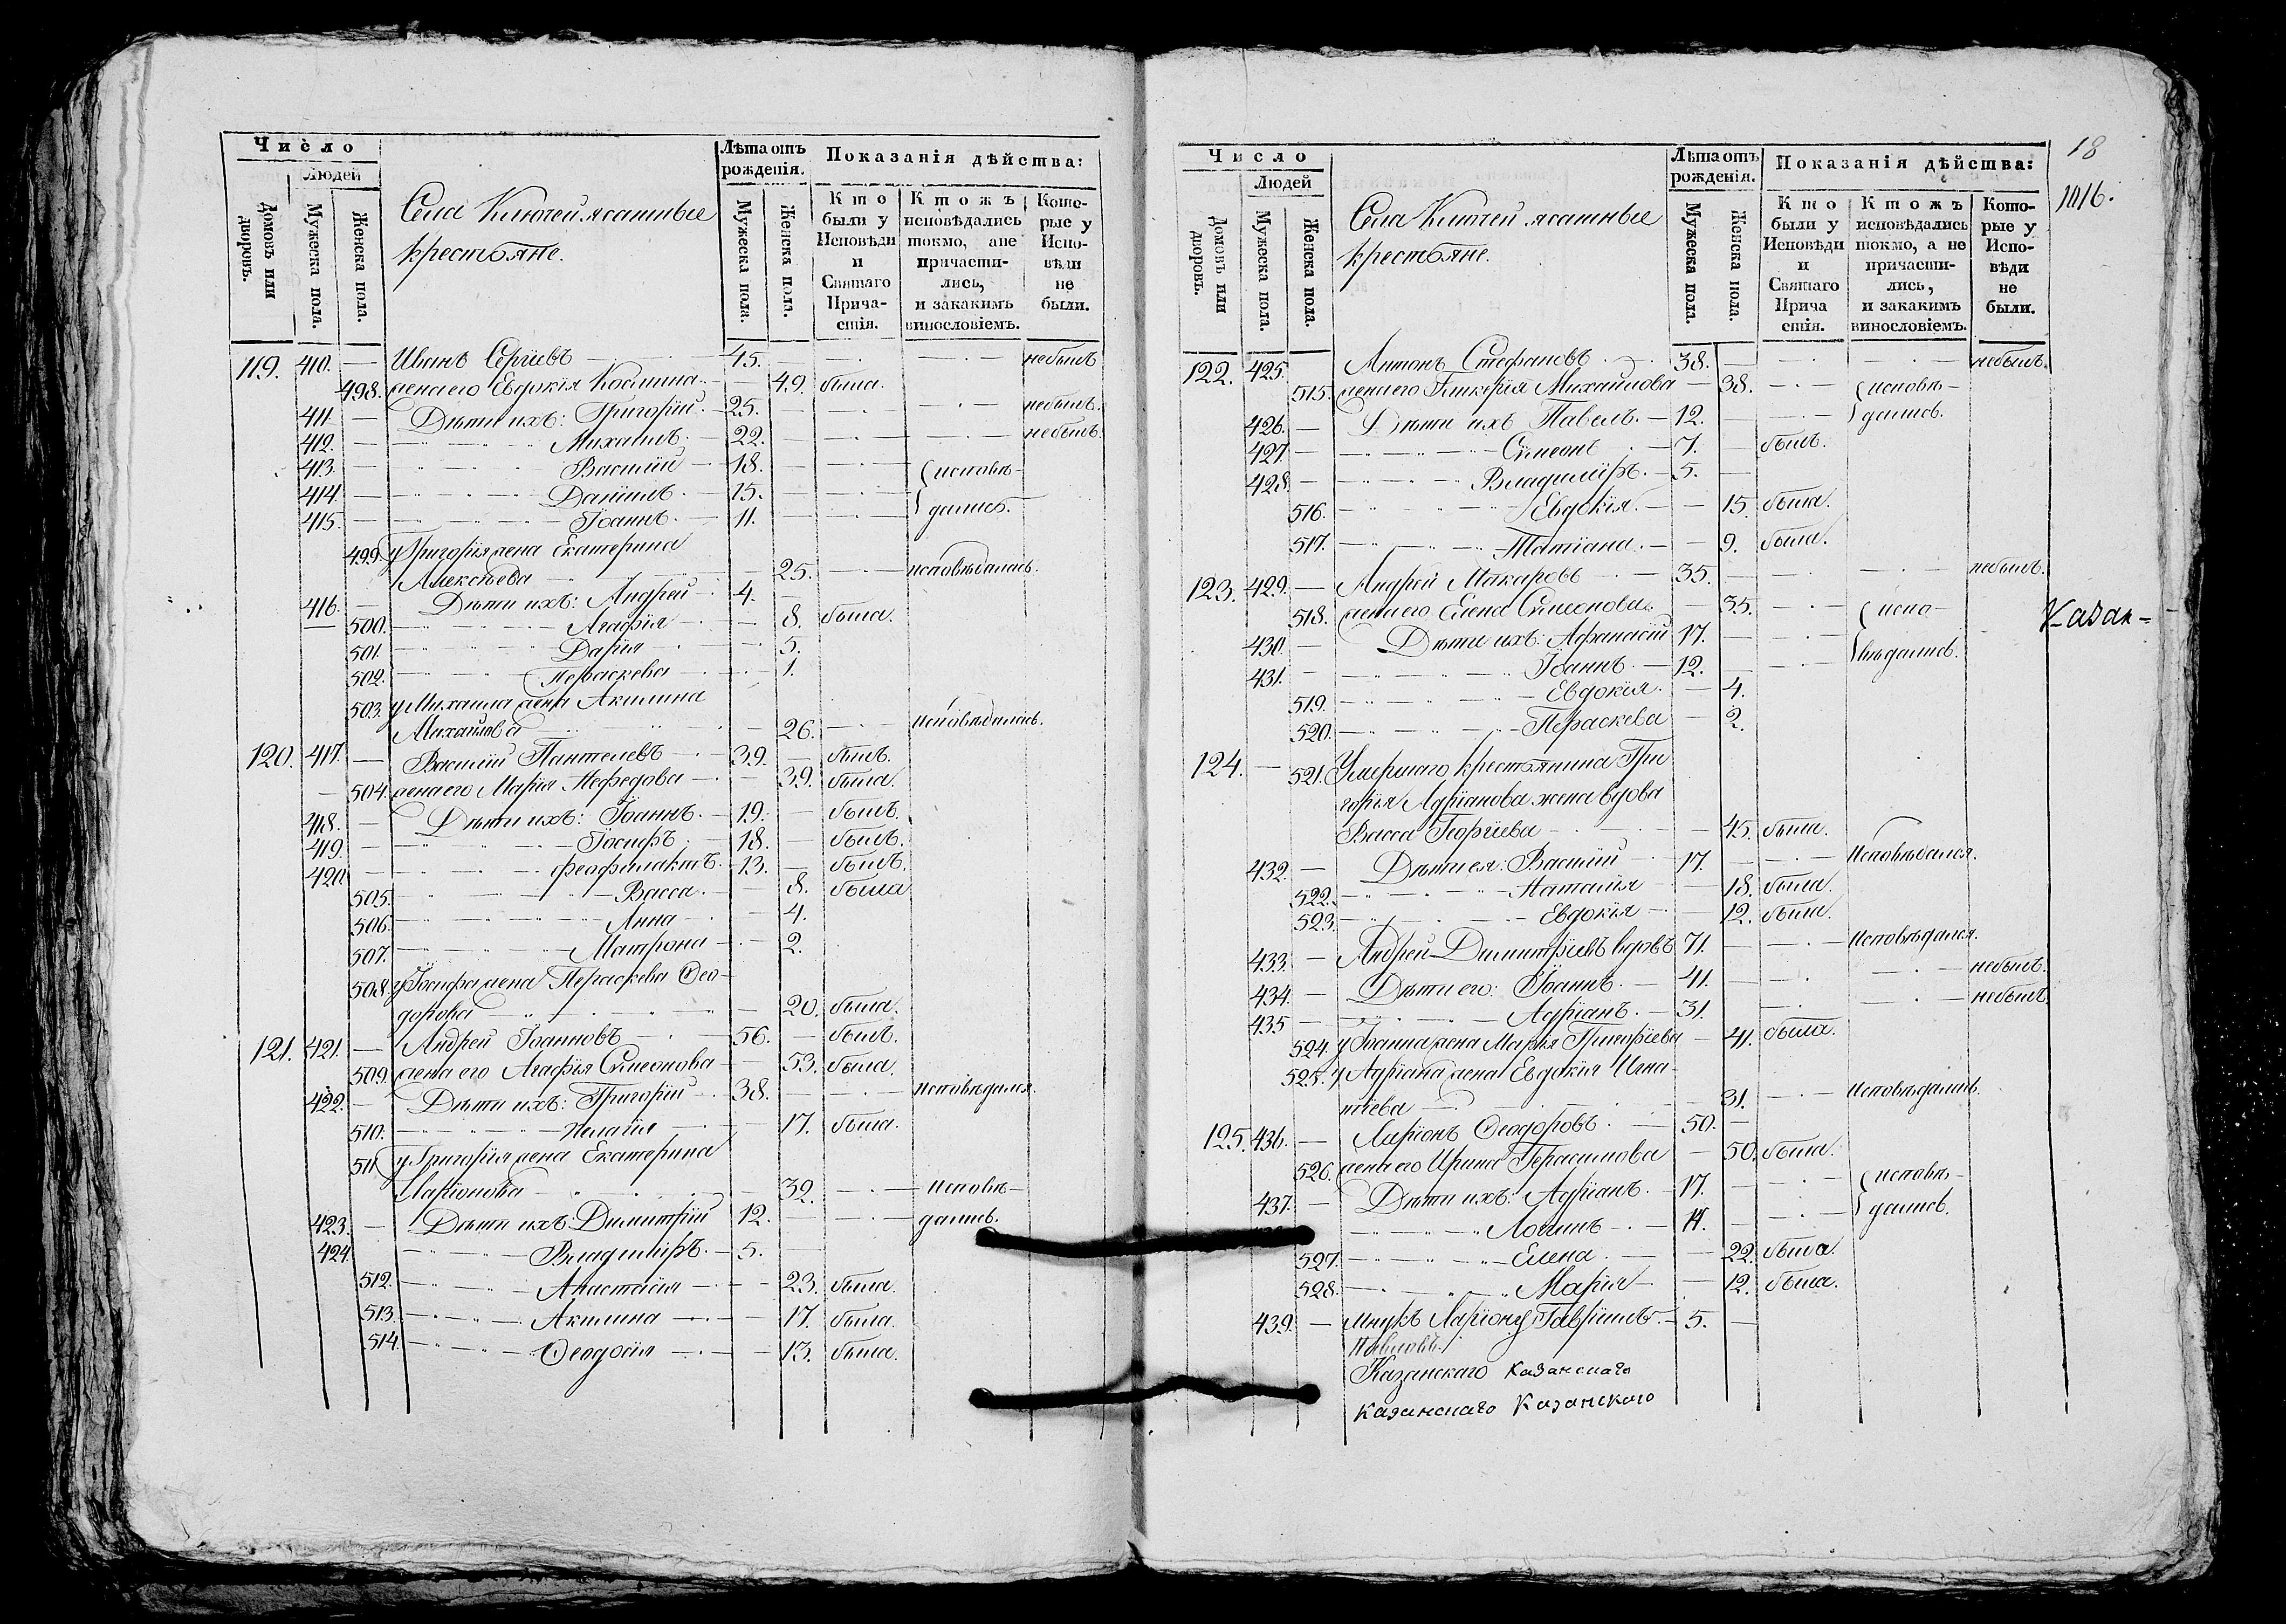 Число
Людей
Домовъ или дворовъ.
Мужеска пола.
Женска пола.
Села Ключей ясашные
крестьяне.
Лѣта отъ рожденія.
Мужеска пола.
Женска пола.
Показанія дѣйства:
Кто были у Исповѣди и Святаго Причастія.
Ктожъ исповѣдались токмо, а не причастились, и за какимъ винословіемъ.
Которые у Исповѣди не были.
119. 410. — Иванъ Сергіевъ — 45. — небылъ
498. жена его Евдокія Козмина — 49. была.
411 — Дѣти ихъ: Григорій. — 25. — небылъ.
412. — Михаилъ. — 22. — небылъ.
413. — Василій — 18. — исповѣ-
414. — Даніилъ. — 15. — дались.
415. — Іоаннъ. — 11.
499. у Григорія жена Екатерина
Алексѣева — 25. — исповѣдалась.
416. — Дѣти ихъ: Андрей — 4. —
500. — Агафія — 8. была.
501. — Дарія — 5.
502. — Параскева — 1.
503. у Михаила жена Акилина
Михайлова — 26. — исповѣдалась.
120. 417. — Василій Пантелеевъ — 39. — былъ.
504. жена его Марія Нефедова — 39. была.
418. — Дѣти ихъ: Іоаннъ. — 19. — былъ.
419. — Іосифъ — 18. — былъ.
420. — Феофилактъ. — 13. — былъ.
505. — Васса. — 8. была
506. — Анна — 4.
507. — Матрона — 2.
508. у Іосифа жена Параскева Ѳео-
дорова — 20. была.
121. 421. — Андрей Іоанновъ — 56. — былъ.
509. жена его Агафія Симеонова — 53. была.
422. — Дѣти ихъ: Григорій — 38. — исповѣдался.
510. — Пелагія — 17. была.
511. у Григорія жена Екатерина
Ларіонова — 32. — исповѣ-
423. — Дѣти ихъ: Димитрій 12. — дались.
424. — Владиміръ. — 5. —
512. — Анастасія — 23. была.
513. — Акилина — 17. была.
514. — Ѳеодосія — 13. была.
18
1016.
Число
Людей
Домовъ или дворовъ.
Мужеска пола.
Женска пола.
Села Ключей ясашные
крестьяне.
Лѣта отъ рожденія.
Мужеска пола.
Женска пола.
Показанія дѣйства:
Кто были у Исповѣди и Святаго Прича стія.
Ктожъ исповѣдались токмо, а не причастились, и за какимъ винословіемъ.
Которые у Исповѣди не были.
122. 425. Антонъ Стефановъ — 38. — небылъ.
515. жена его Гликерія Михайлова — 38. — исповѣ-
426. — Дѣти ихъ Павелъ. — 12. — дались.
427. — Симеонъ — 7. — былъ.
428. — Владиміръ. — 5. —
516. — Евдокія. — 15. была.
517. — Татіана. — 9. была.
123. 429. — Андрей Макаровъ — 35. — небылъ.
518. жена его Елена Симеонова. — 35. — испо-
430. — Дѣти ихъ: Афанасій 17. — вѣдались.
431. — Іоаннъ. — 12. —
519. — Евдокія. — 4.
520. — Параскева — 2.
Казан-
124. — 521. Умершаго крестьянина Гри
горія Адріанова жена вдова
Васса Георгіева — 45. была.
432. — Дѣти ея: Василій — 17. — исповѣдался.
522. — Наталія — 18. была.
523. — Евдокія — 12. была.
433. — Андрей Димитріевъ вдовъ 71. — исповѣдался.
434. — Дѣти его: Іоаннъ. — 41. — небылъ.
435 — Адріанъ. — 31. — небылъ.
524. у Іоанна жена Марья Григоріева — 41. была.
525. у Адріана жена Евдокія Игна-
тіева — 31. — исповѣдались.
125. 436. — Ларіонъ Ѳеодоровъ. — 50. —
526. жена его Ирина Герасимова — 50. была.
437. — Дѣти ихъ: Адріанъ. — 17. — исповѣ-
Логинъ — 14. — дались.
527. — Елена. — 22. была.
528. — Марія — 12. была.
439. — внукъ Ларіону Гавріилъ — 5. —
Павловъ.
Казанскаго Казанскаго
Казанскаго Казанского